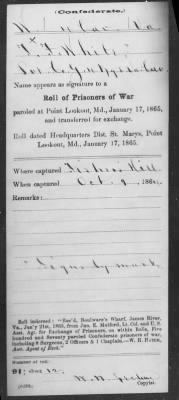 (Confederate.)
Va
Name appears as signature to a
Roll of Prisoners of War
paroled at Point Lookout, Md., January 17, 1865,
and transferred for exchange.
Roll dated Headquarters Dist. St. Marys, Point
Lookout, Md., January 17, 1865.
Where captured Fishers Hill
When captured Oct. 9, 186
Remarks:
Signs by mark
Roll indorsed: "Rec'd, Boulware's Wharf, James River,
Va., Jan'y 21st, 1865, from Jno. E. Mulford, Lt. Col. and U. S.
Asst. Agt. for Exchange of Prisoners, on within Rolls, Five
hundred and Seventy paroled Confederate prisoners of war,
including 2 Surgeons, 2 Officers & 1 Chaplain.—W. H. Hatch,
Asst. Agent of Exch."
Number of roll:
91; sheet 12
Copyist.